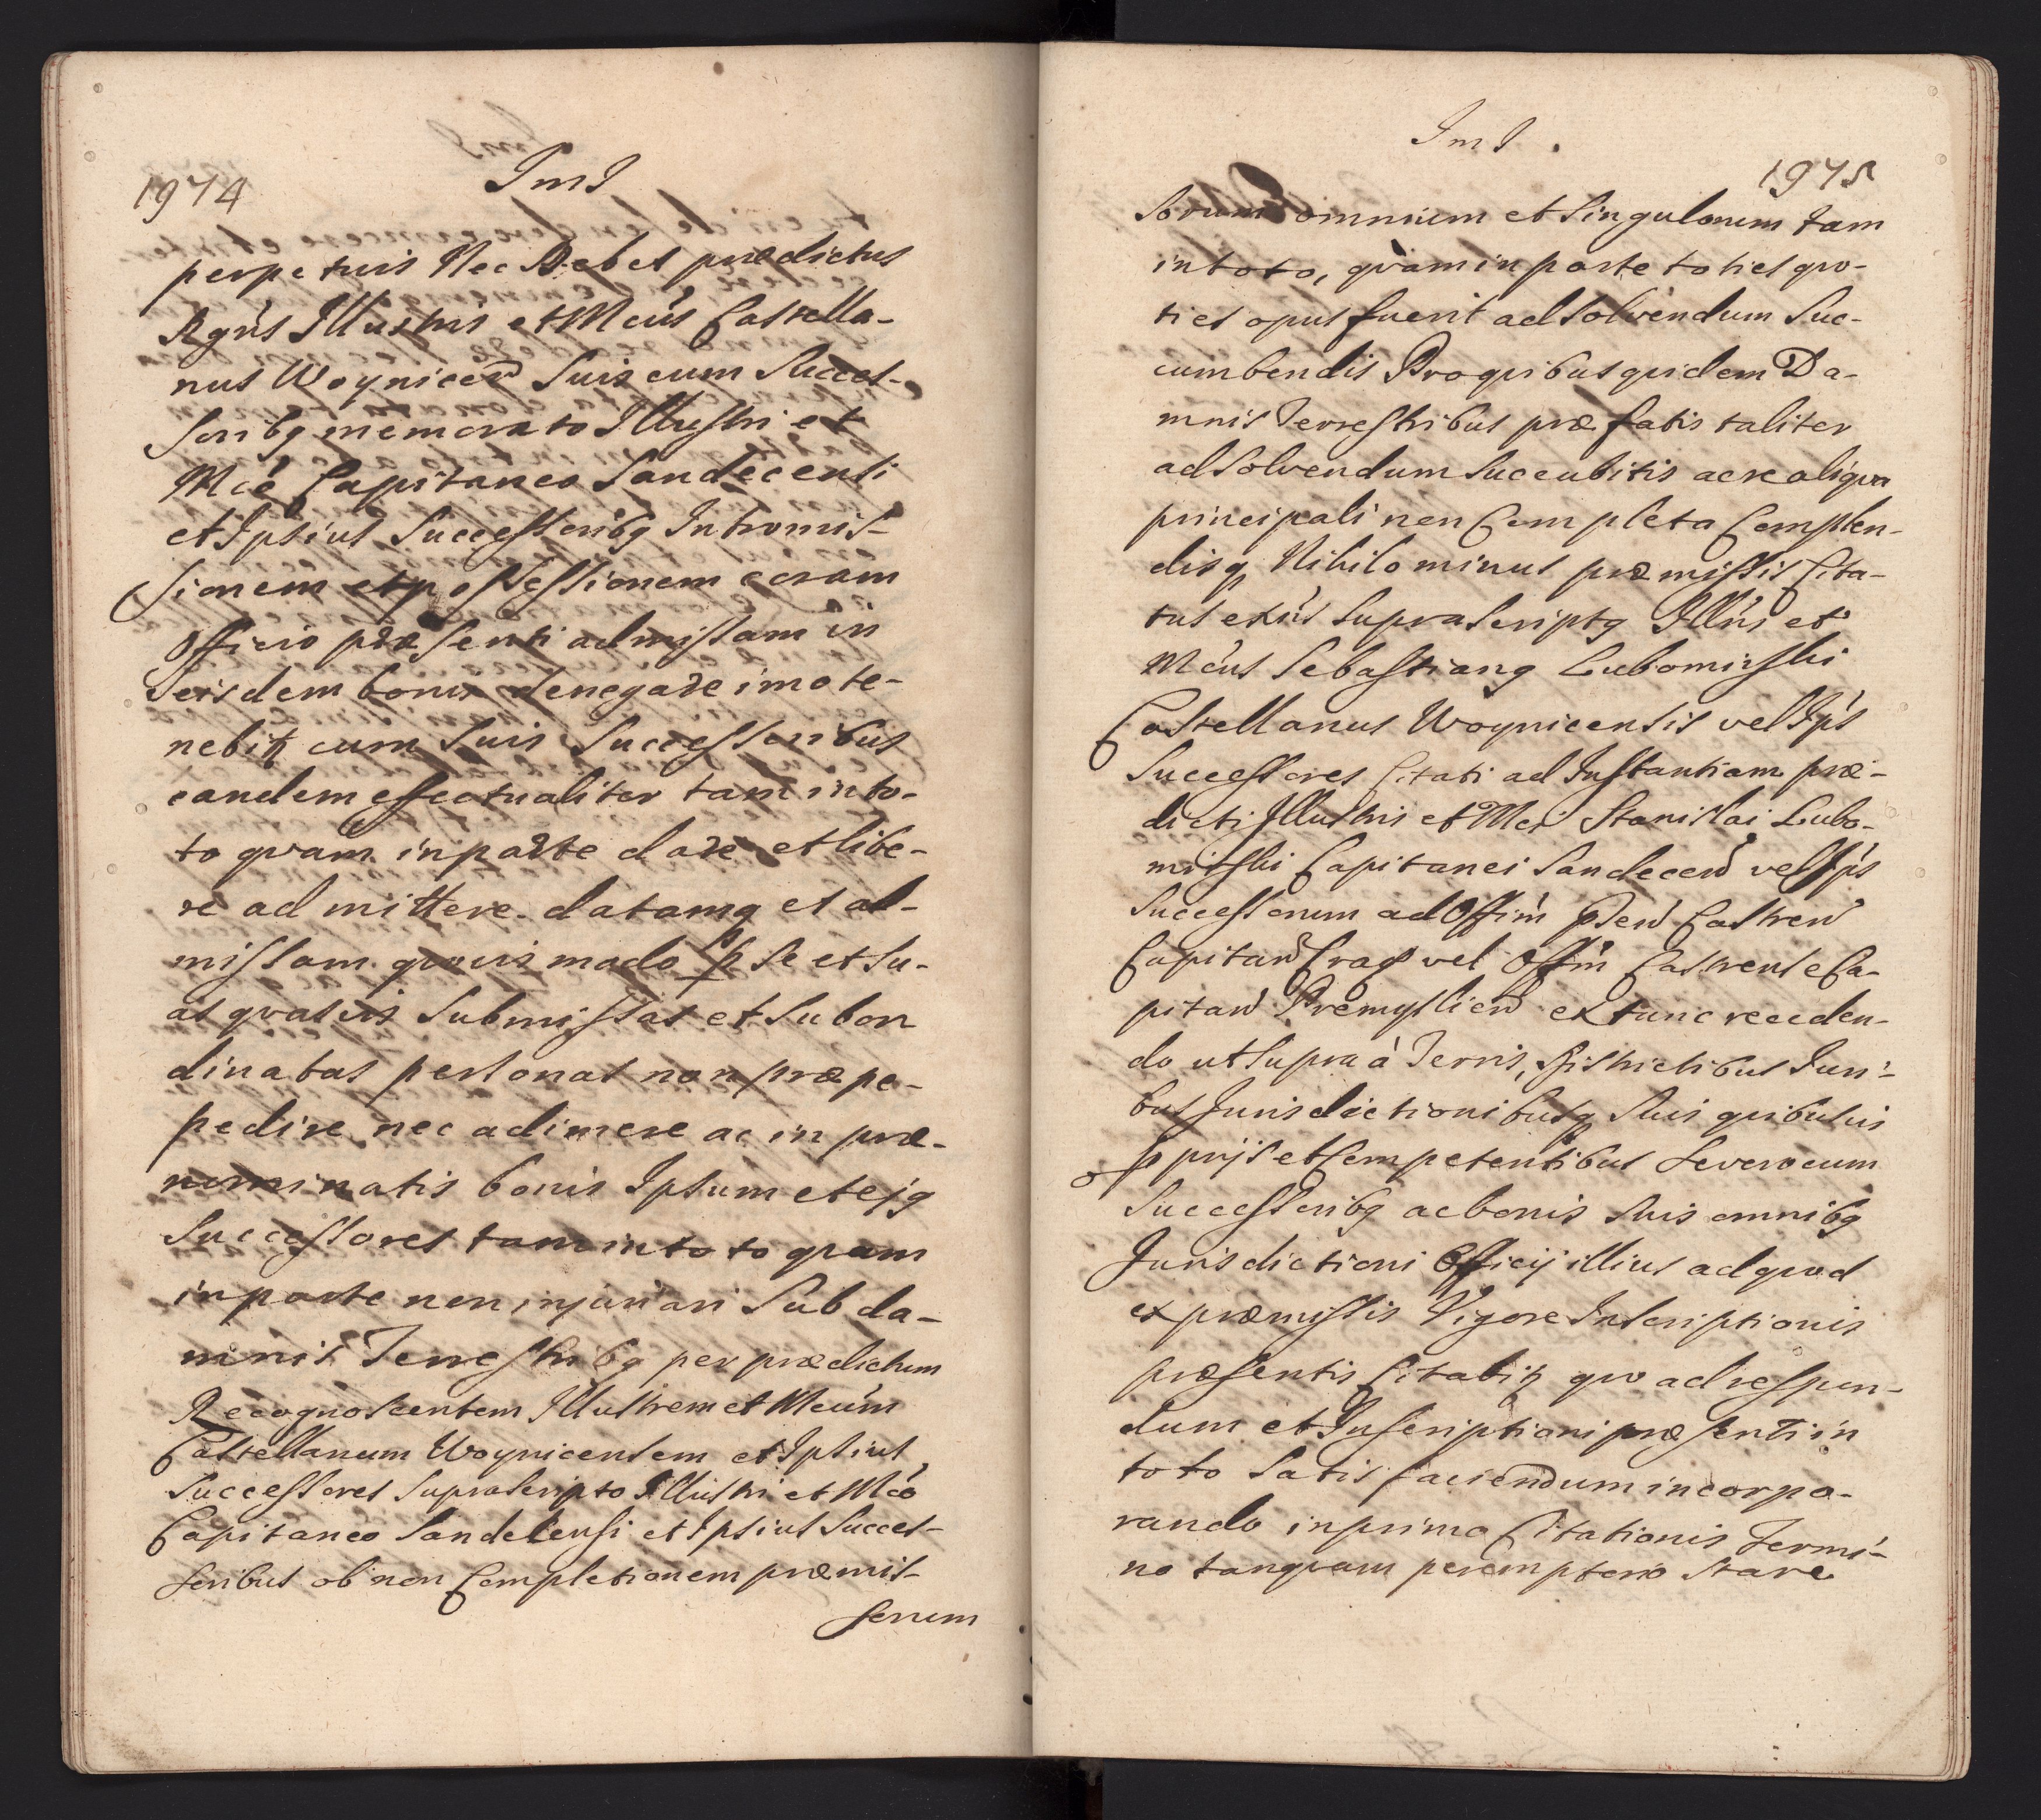 1974
ImI
perpetuis Nec Debet prædictus
Rgńs Illustris et Mcús Castella-
nus Woyniceń Suis cum Succes-
soribq memorato Illustri et
Mcó Capitaneo Sandecensi
et Ipsius Successoribq Intromis-
sionem et possessionem coram
Officio præsenti admissam in
Jeisdem bonis denegare imo te-
nebit cum Suis Successoribus
eandem effectualiter tam in to-
to qvam in parte dare et libe-
re admittere datamq et ad-
missam qvovismodo p Se et Su-
as qvasvis Submissas et Subor
dinatas personas non præpe-
pedire nec adimere ac in præ-
nominatis bonis Ipsum et ejq
Successores tam in toto qvam
in parte non injuriari Sub da-
mnis Terrestribq per prædictum
Recognoscentem Illustrem et Mcúm
Castellanum Woynicensem et Ipsius
Successores Suprascripto Illustri et Mcó
Capitaneo Sandecensi et Ipsius Succes-
soribus ob non Completionem præmis-
sorum
ImI.
1975
sorum omnium et Singulorum tam
in toto, qvam in parte toties qvo-
ties opus fuerit ad Solvendum Suc-
cumbendis Pro qvibus qvidem Da-
mnis Terrestribus præfatis taliter
ad Solvendum Succubitis ac re aliqva
principali non Completa Complen-
disq Nihilominus præmissis Cita-
tus exńs Suprascriptq Illńs et
Mcús Sebastianq Lubomirski
Castellanus Woynicensis vel Ips
Successores Citati ad Instantiam præ-
dicti Illustris et Mci Stanislai Lubo-
mirski Capitanei Sandeceń vel Ips
Successorum ad Offim pseń Castreń
Capitań Crag vel Offm Castrense Ca-
pitań Premyslień ex tunc receden-
do ut Supra à Terris, Districtibus Juri-
bus Jurisdictionibusq Suis qvibusvis
pprijs et Competentibus Se vero cum
Successoribq ac bonis Suis omnibq
Jurisdictioni Officij illius ad qvod
ex præmissis Vigore Inscriptionis
præsentis Citabit qvo ad respon-
dum et Inscriptioni præsenti in
toto Satisfaciendum incorpo-
rando in primo Citationis Termi-
no tanqvam peremptorio Stare